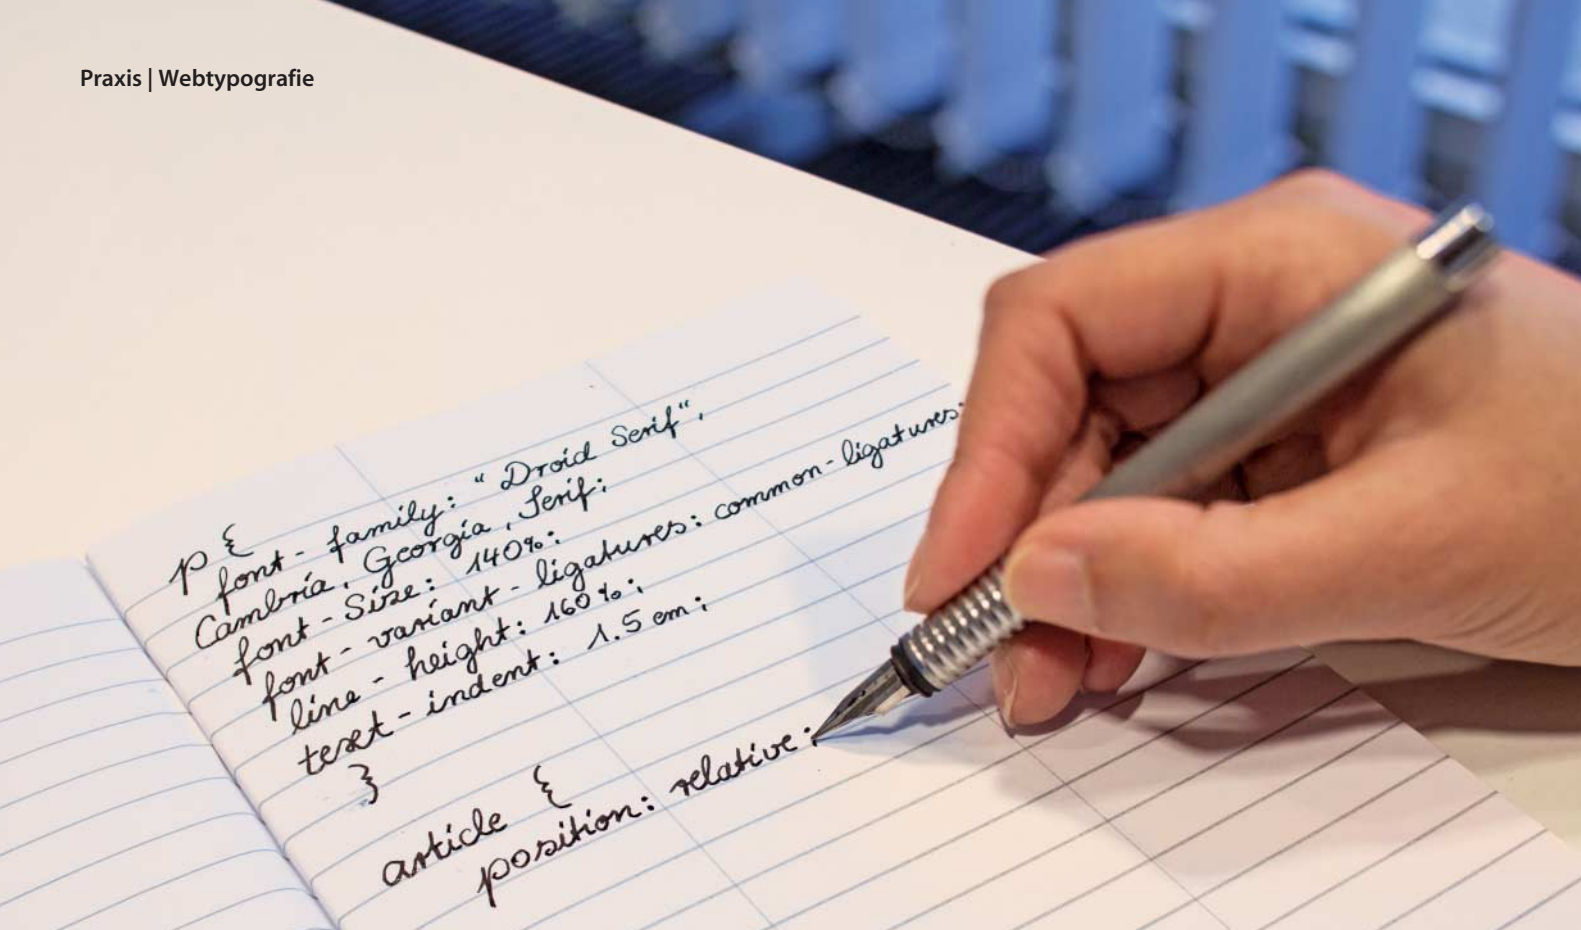 Praxis | Webtypografie
p {
font-family: “Droid Serif“,
Cambria, Georgia, Serif;
font-Size: 140%;
font-variant-ligatures: common-ligatures;
line-height: 160%;
text-indent: 1.5em;
}
article {
position: relative;